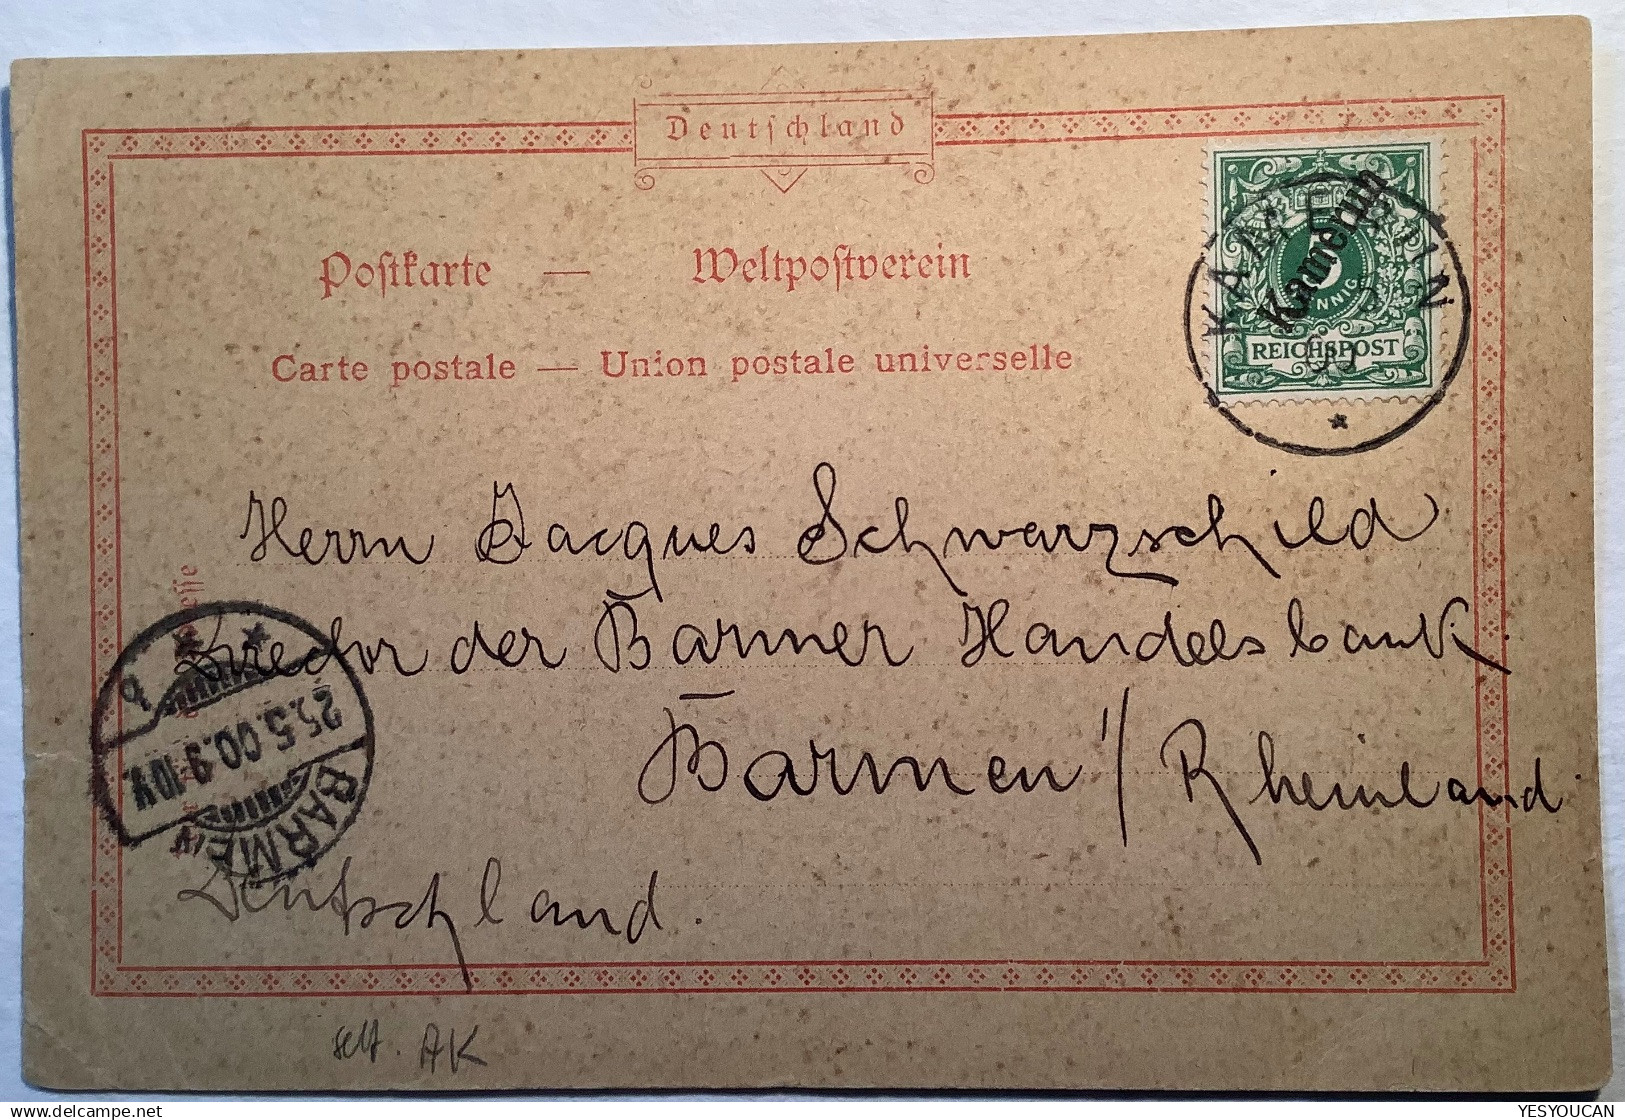 Deutschland
Postkarte — Weltpostverein
Carte postale — Union postale universelle
5
PFENNIG
REICHSPOST
Kamerun
KAMERUN
Herrn Jacques Schwarzschild
Director der Barmer Handelsbank.
Barmen i/ Rheinland
Deutschland.
BARMEN
25.5.00.9-10V.
b
AK
YESYOUCAN